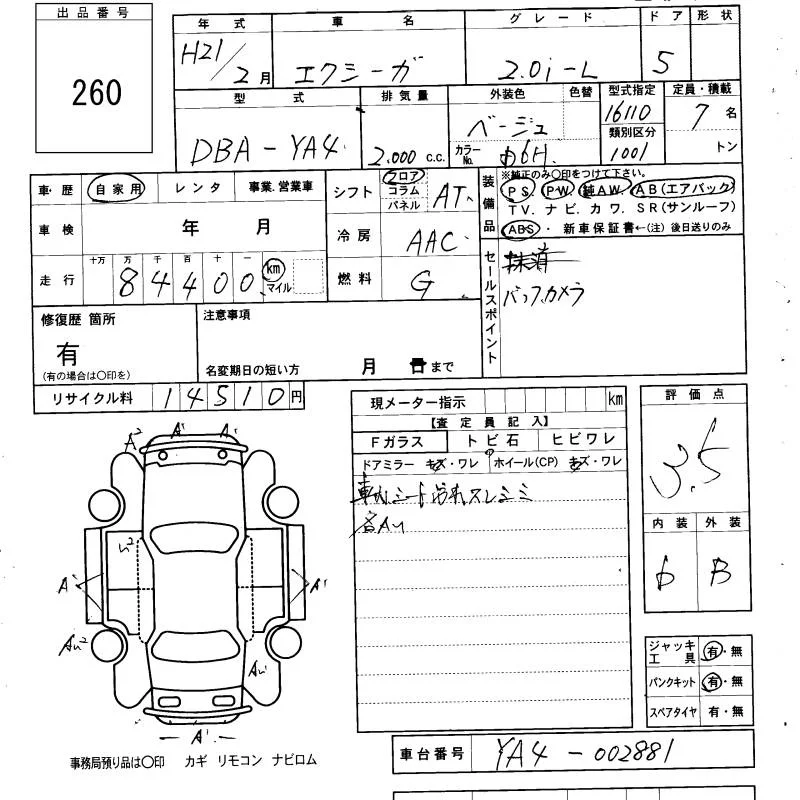 出品番号
260
年式 車名 グレード ドア 形状
H21/2月 エクシーガ 2.0i-L 5
型式 排気量 外装色 色替 型式指定 定員・積載
DBA-YA4 2.000 c.c. ベージュ 16110 7名
カラーNo. 類別区分 トン
D6H 1001
車・歴 自家用 レンタ 事業.営業車
シフト フロア コラム パネル AT
車検 年 月
冷房 AAC
走行 十万 万 千 百 十 一
84400 km マイル
燃料 G
装備品
※純正のみ○印をつけて下さい。
PS PW 純AW AB(エアバック)
TV. ナビ. カワ. SR(サンルーフ)
ABS・ 新車保証書←(注)後日送りのみ
セールスポイント
抹消
バックカメラ
修復歴 箇所
有
(有の場合は○印を)
注意事項
名変期日の短い方 月 日まで
リサイクル料 14510円
現メーター指示 km
【査定員記入】
Fガラス トビ石 ヒビワレ
ドアミラー キズ・ワレ ホイール(CP) キズ・ワレ
シート汚れスレシミ
各AU
評価点
3.5
内装 外装
D B
A2 A' A'
U2
A' A'
AU2
AU'
A'
ジャッキ工具 有・無
パンクキット 有・無
スペアタイヤ 有・無
車台番号 YA4-002881
事務局預り品は○印 カギ リモコン ナビロム